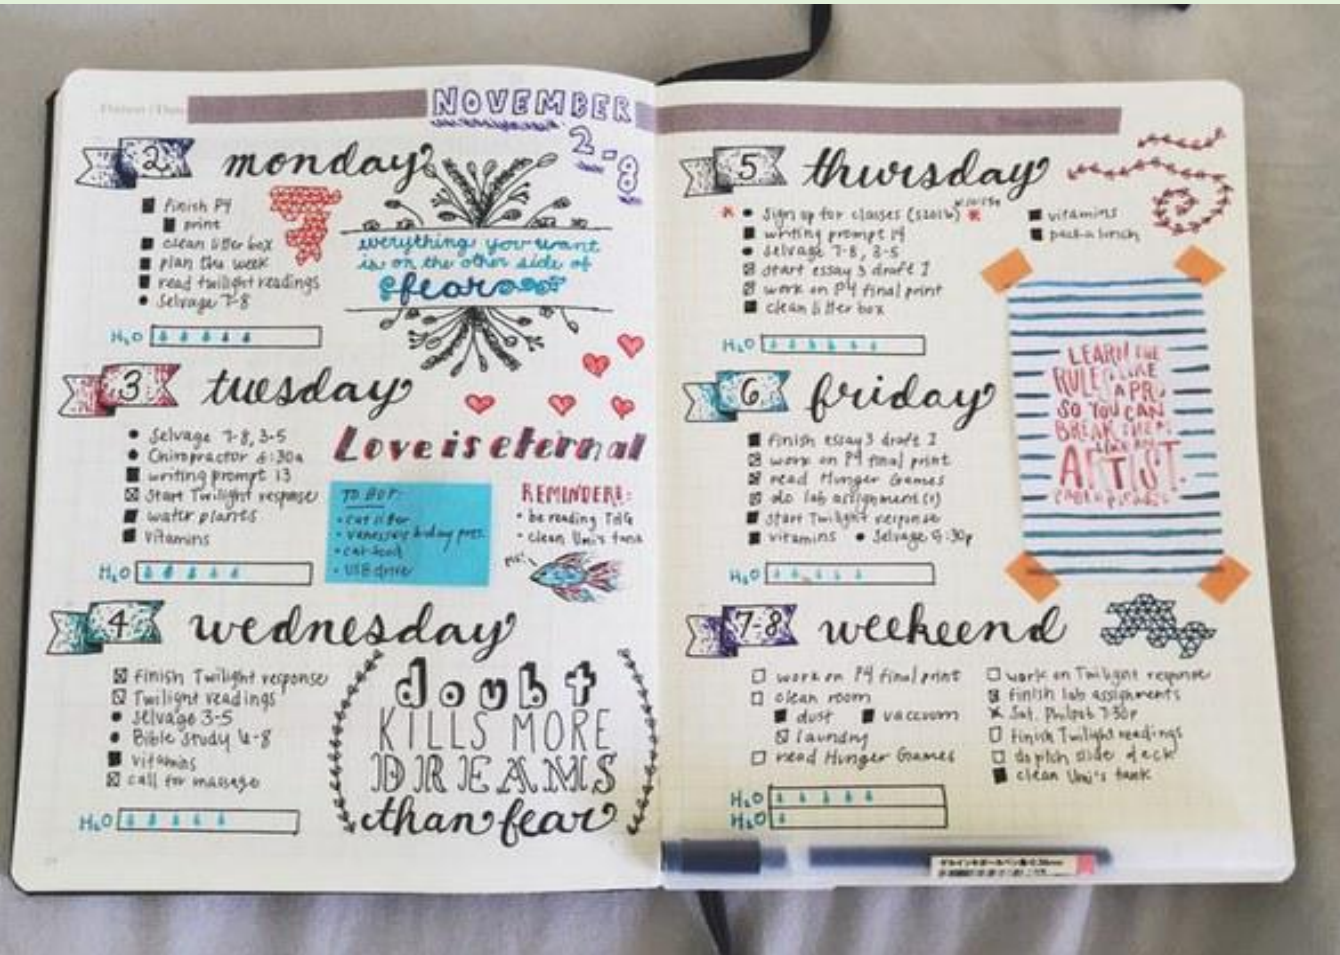 NOVEMBER
2-8
2 monday
finish P4
print
clean litter box
plan the week
read twilight readings
Selvage 7-8
H2O
everything you want
is on the other side of
fear
3 tuesday
Selvage 7-8, 3-5
Chiropractor 6:30a
writing prompt 13
Start Twilight response
water plants
vitamins
H2O
Love is eternal
TO BUY:
cat litter
vanessa's b-day pres.
cat food
USB drive
REMINDERS:
be reading TdG
clean Umi's tank
4 wednesday
finish Twilight response
Twilight readings
Selvage 3-5
Bible Study 6-8
vitamins
call for massage
H2O
doubt
KILLS MORE
DREAMS
than fear
5 thursday
Sign up for classes (S2016)
writing prompt 14
Selvage 7-8, 3-5
Start essay 3 draft 1
work on P4 final print
clean litter box
vitamins
pack a lunch
H2O
6 friday
finish essay 3 draft 1
work on P4 final print
read Hunger Games
do lab assignment(s)
Start Twilight response
vitamins Selvage 5:30p
H2O
LEARN THE
RULES LIKE
A PRO,
SO YOU CAN
BREAK THEM
LIKE AN
ARTIST.
7-8 weekeend
work on P4 final print
clean room
dust vaccuum
laundry
read Hunger Games
work on Twilight response
finish lab assignments
Sat. Philpot 7:30p
finish Twilight readings
do ptch slide deck
clean Umi's tank
H2O
H2O